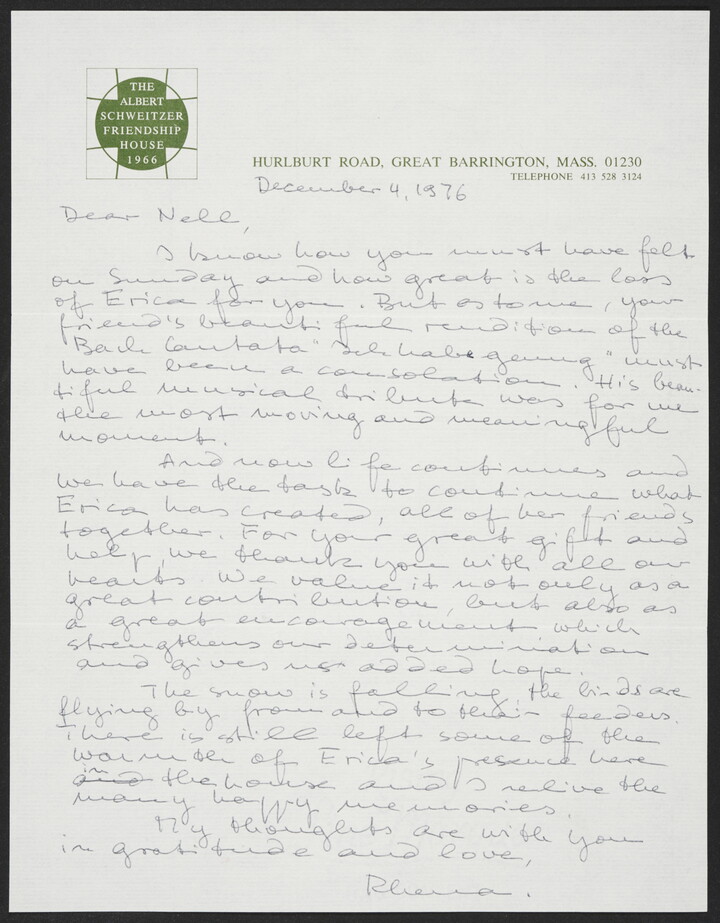 THE
ALBERT
SCHWEITZER
FRIENDSHIP
HOUSE
1966
HURLBURT ROAD, GREAT BARRINGTON, MASS. 01230
TELEPHONE 413 528 3124
December 4, 1976
Dear Nell,
I know how you must have felt
on Sunday and how great is the loss
of Erica for you. But as to me, your
friend's beautiful rendition of the
"Bach Cantata" "Ich habe genug" must
have been a consolation. His beau-
tiful musical tribute was for me
the most moving and meaningful
moment.
And now life continues and
we have the task to continue what
Erica has created, all of her friends
together. For your great gift and
help, we thank you with all our
hearts. We value it not only as a
great contribution, but also as
a great encouragement which
strengthens our determination
and gives us added hope.
The snow is falling, the birds are
flying by from and to their feeders.
There is still left some of the
warmth of Erica's presence here
in the house and I relive the
many happy memories.
My thoughts are with you
in gratitude and love,
Rhena.